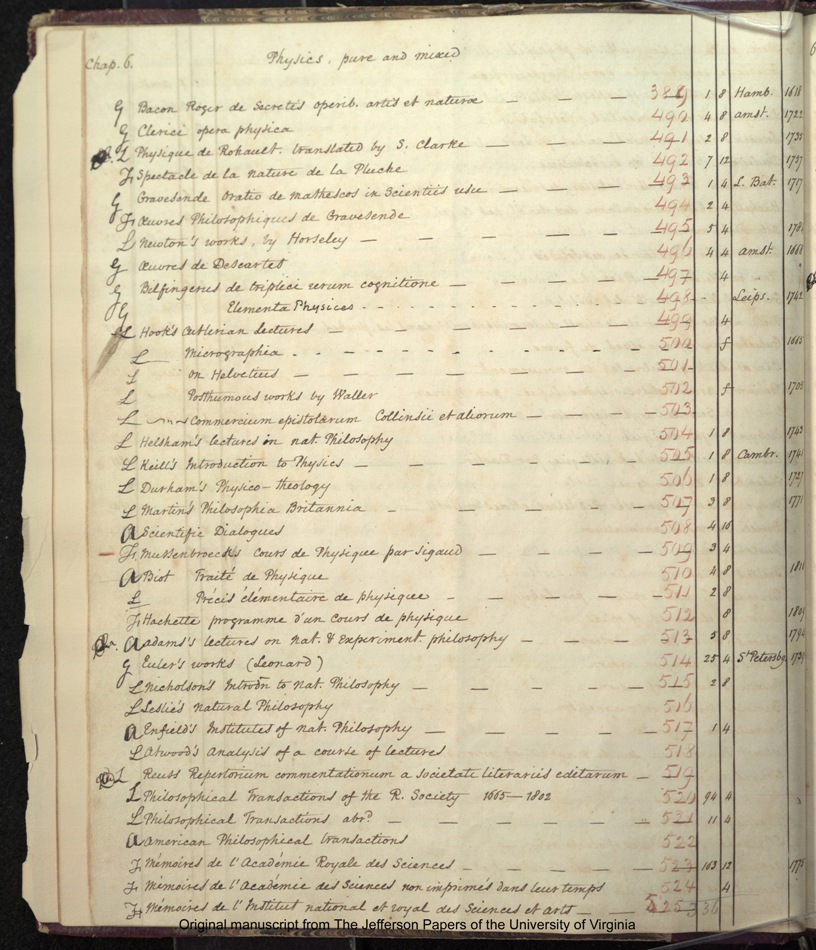 Chap. 6. Physics, pure and mixed
G Bacon Roger de Secretis operib. artis et naturae — — — 389 1 8 Hamb. 1618
G Clerici opera physica 490 4 8 Amst. 1722
L Physique de Rohault. translated by S. Clarke — — — — 491 2 8 1735
Fr Spectacle de la nature de la Pluche 492 7 12 1737
G Gravesende Oratio de matheseos in Scientiis usu — — — 493 1 4 L. Bat. 1717
Fr Œuvres Philosophiques de Gravesende 494 2 4
L Newton's works, by Horseley — — — — — — 495 5 4
G Œuvres de Descartes 496 4 4 Amst.
G Bilfingerus de triplici rerum cognitione — — — — 497 4
G Elementa Physices - - - - - - - - 498 Leips. 1742
L Hook's Cutlerian lectures — — — — — — 499 4
L Micrographia - - - - - - - - 500 f 1665
L on Helvetius — — — — — — 501
L Posthumous works by Waller 502 f 1705
L Commercium epistolarum Collinsii et aliorum — — — — 503
L Helsham's lectures in nat. Philosophy 504 1 8 1743
L Keill's Introduction to Physics — — — — — — 505 1 8 Cambr. 1741
L Durham's Physico-theology 506 1 8 1727
L Martin's Philosophia Britannia — — — — — — 507 3 8 1771
A Scientific Dialogues 508 4
Fr Mussenbroeck's Cours de Physique par Sigaud — — — — 509 3 4
A Biot Traité de Physique 510 4 8
L Précis élémentaire de physique — — — — — 511 2 8
Fr Hachette programme d'un cours de physique 512 8 1809
A Adams's lectures on Nat. & Experiment. philosophy — — — — 513 5 8 1794
G Euler's works (Leonard) 514 25 4 St Petersbg.
L Nicholson's Introdn to Nat. Philosophy — — — — — 515 2 8
L Leslie's natural Philosophy 516
A Enfield's Institutes of nat. Philosophy — — — — — 517 1 4
L Atwood's Analysis of a course of lectures 518
L Reuss Repertorium commentationum a societate literariis editarum — 519
L Philosophical Transactions of the R. Society 1665—1802 520 94 4
L Philosophical Transactions abr. — — — — — — 521 11 4
A American Philosophical transactions 522
Fr Mémoires de l'Académie Royale des Sciences — — — — — 523 103 12 1775
Fr Mémoires de l'Académie des Sciences non imprimés dans leur temps 524 4
Fr Mémoires de l'Institut national et royal des Sciences et arts — — 525 336
Original manuscript from The Jefferson Papers of the University of Virginia